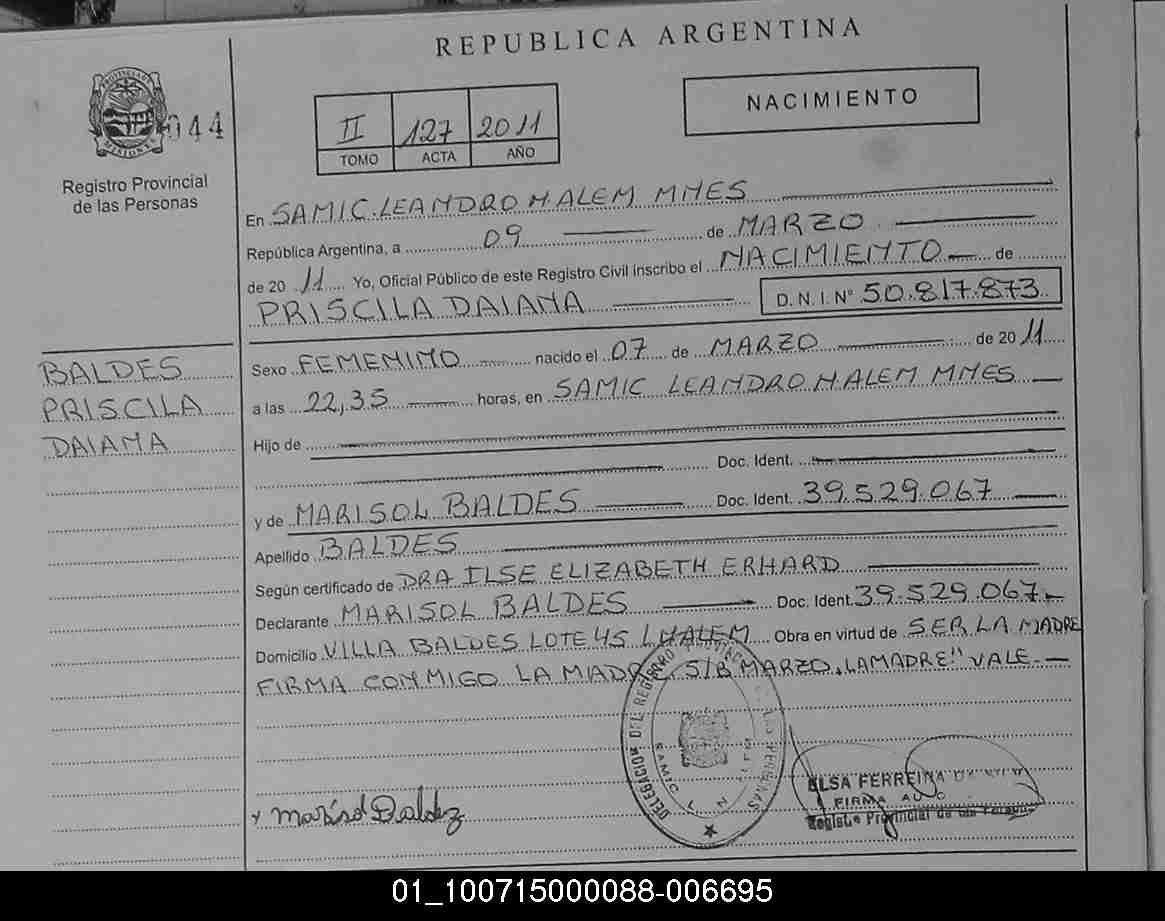 REPUBLICA ARGENTINA
PROVINCIA DE
MISIONES
044
Registro Provincial
de las Personas
II 127 2011
TOMO ACTA AÑO
NACIMIENTO
En SAMIC.LEANDRO N ALEM MNES
República Argentina, a 09 de MARZO
de 20 11 Yo, Oficial Público de este Registro Civil inscribo el NACIMIENTO de
PRISCILA DAIANA D.N.I.Nº 50.817.873
BALDES
PRISCILA
DAIANA
Sexo FEMENINO nacido el 07 de MARZO de 20 11
a las 22,35 horas, en SAMIC LEANDRO N ALEM MNES
Hijo de
Doc. Ident.
y de MARISOL BALDES Doc. Ident. 39.529.067
Apellido BALDES
Según certificado de DRA ILSE ELIZABETH ERHARD
Declarante MARISOL BALDES Doc. Ident. 39.529.067
Domicilio VILLA BALDES LOTE 45 L N ALEM Obra en virtud de SER LA MADRE
FIRMA CONMIGO LA MADRE. S/B MARZO, LA MADRE" VALE.
DELEGACION DEL REGISTRO PROVINCIAL DE LAS PERSONAS
SAMIC L. N. ALEM
x Marisol Baldez
ELSA FERREIRA
FIRMA AU
Registro Provincial de las Personas
01_100715000088-006695